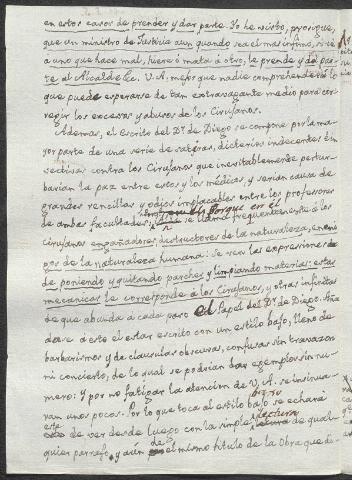 en estos casos de prender y dar parte. Yo he visto, prosigue,
que un ministro de Justicia aun quando sea el mas infimo, si ve
á uno que hace mal, hiere ó mata á otro, le prende y da par-
te al Alcalde &c. V. A. mejor que nadie comprehenderá lo
que puede esperarse de tan extravagante medio para cor-
regir los excesos y abusos de los Cirujanos.
Ademas, el Escrito del Dr. de Diego se compone por la ma-
yor parte de una serie de satyras, dicterios indecentes é in-
vectivas contra los Cirujanos que inevitablemente pertur-
barian la paz entre estos y los médicos, y serian causa de
grandes rencillas y odios implacables entre los profesores
de ambas facultades; Porque en él se llama frequentemente á los
Cirujanos engañadores, destructores de la naturaleza, enemi-
gos de la naturaleza humana: Se ven las expresiones de
de poniendo y quitando parches y limpiando materias: estas
mecanicas le corresponde á los Cirujanos, y otras infinitas
de que abunda á cada paso el Papel del Dr. de Diego. Aña-
dase á esto el estar escrito con un estilo bajo, lleno de
barbarismos y de clausulas obscuras, confusas sin trabazon
ni concierto, de lo qual se podrian dar exemplos sin nu-
mero; y por no fatigar la atencion de V. A. se insinua-
ran unos pocos. Por lo que toca al estilo bajo se echará
de ver desde luego con la simple lectura de qual-
quier parrafo, y aún de el mismo titulo de la Obra que di-